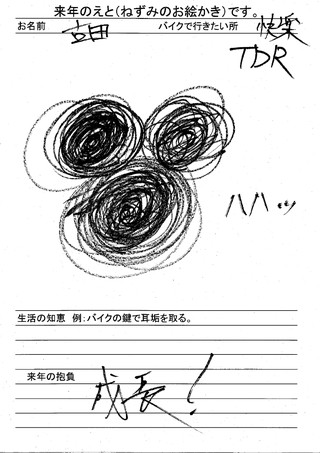 来年のえと(ねずみのお絵かき)です。
お名前 吉田 バイクで行きたい所 快楽
TDR
ハハッ
生活の知恵 例：バイクの鍵で耳垢を取る。
来年の抱負
成長！